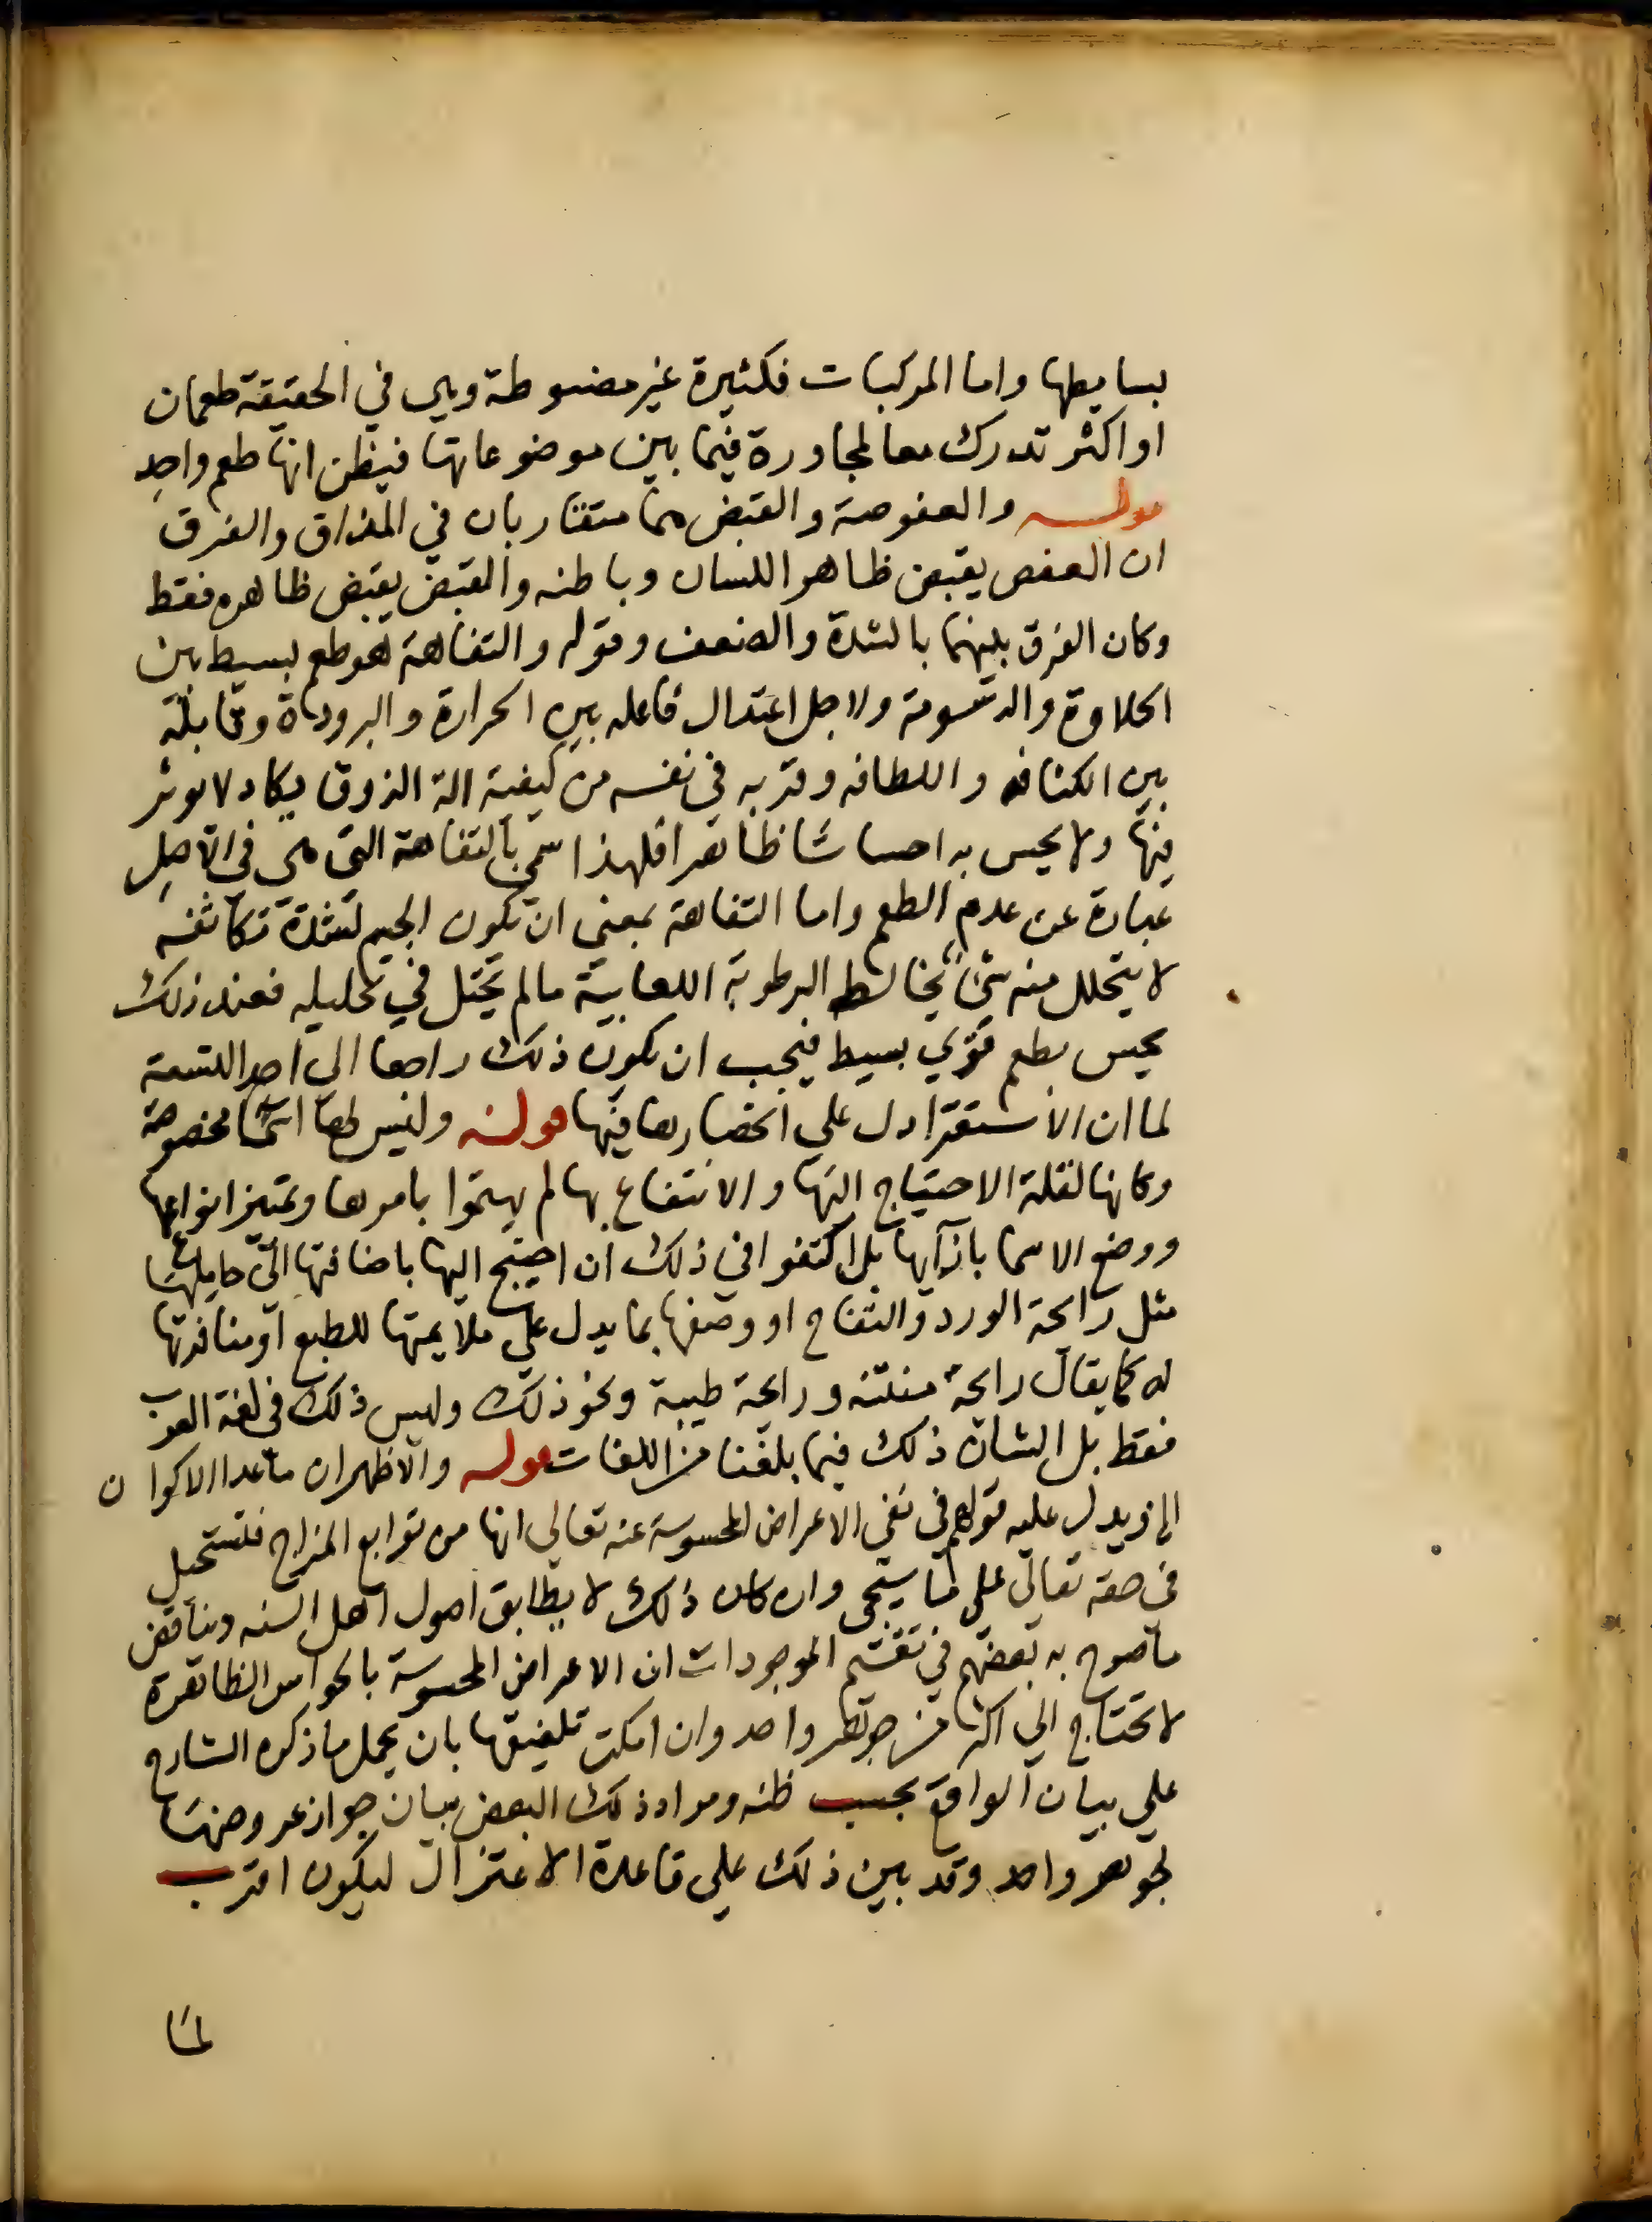 بسايطها واما المركبات فكثيرة غير مضبوطة وهي في الحقيقة طعمان
او اكثر تدرك معا لمجاورة فيما بين موضوعاتها فيظن انها طعم واحد
قوله والعفوصة والقبض هما متقاربان في المذاق والفرق
ان العفص يقبض ظاهر اللسان وباطنه والقبض يقبض ظاهره فقط
وكان الفرق بينهما بالشدة والضعف وقوله والتفاهة هو طعم بسيط بين
الحلاوة والدسومة ولاجل اعتدال فاعله بين الحرارة والبرودة وقابله
بين الكثافة واللطافه وقربه في نفسه من كيفية الة الذوق يكاد لا يوثر
فيها ولا يحس به احساسا ظاهرا فلهذا سمي بالتفاهة التي هي في الاصل
عبارة عن عدم الطعم واما التفاهة بمعني ان يكون الجسم لشدة تكاثفه
لا يتحلل منه شئ يخالط الرطوبة اللعابية مالم يحتل في تحليله فعند ذلك
يحس بطعم قوي بسيط فيجب ان يكون ذلك راجعا الي احد التسعة
لما ان الاستقرا دل علي انحصارها فيها قوله وليس لها اسما مخصوصة
وكانها لقلة الاحتياج اليها والانتفاع بها لم يهتموا بامرها وتمييز انواعها
ووضع الاسما بازآيها بل اكتفوا في ذلك ان احتيج اليها باضافتها الي حاملها
مثل رائحة الورد والتفاح او وصفها بما يدل علي ملايمتها للطبع او منافرتها
له كما يقال رائحة منتنه ورائحة طيبة ونحو ذلك وليس ذلك في لغة العرب
فقط بل الشان ذلك فيما بلغنا من اللغات قوله والاظهر ان ماعدا الاكوان
الخ ويدل عليه قولهم في نفي الاعراض المحسوسة عنه تعالي انها من توابع المزاج فتستحيل
في حقه تعالي علي ما سيجي وان كان ذلك لا يطابق اصول اهل السنه ويناقض
ماصرح به بعضهم في تقسيم الموجودات ان الاعراض المحسوسة بالحواس الظاهرة
لا تحتاج الي اكثر من جوهر واحد وان امكن تلفيقها بان يحمل ما ذكره الشارح
علي بيان الواقع بحسب ظنه ومراد ذلك البعض بيان جواز عروضها
لجوهر واحد وقد بين ذلك علي قاعدة الاعتزال ليكون اقرب
لما